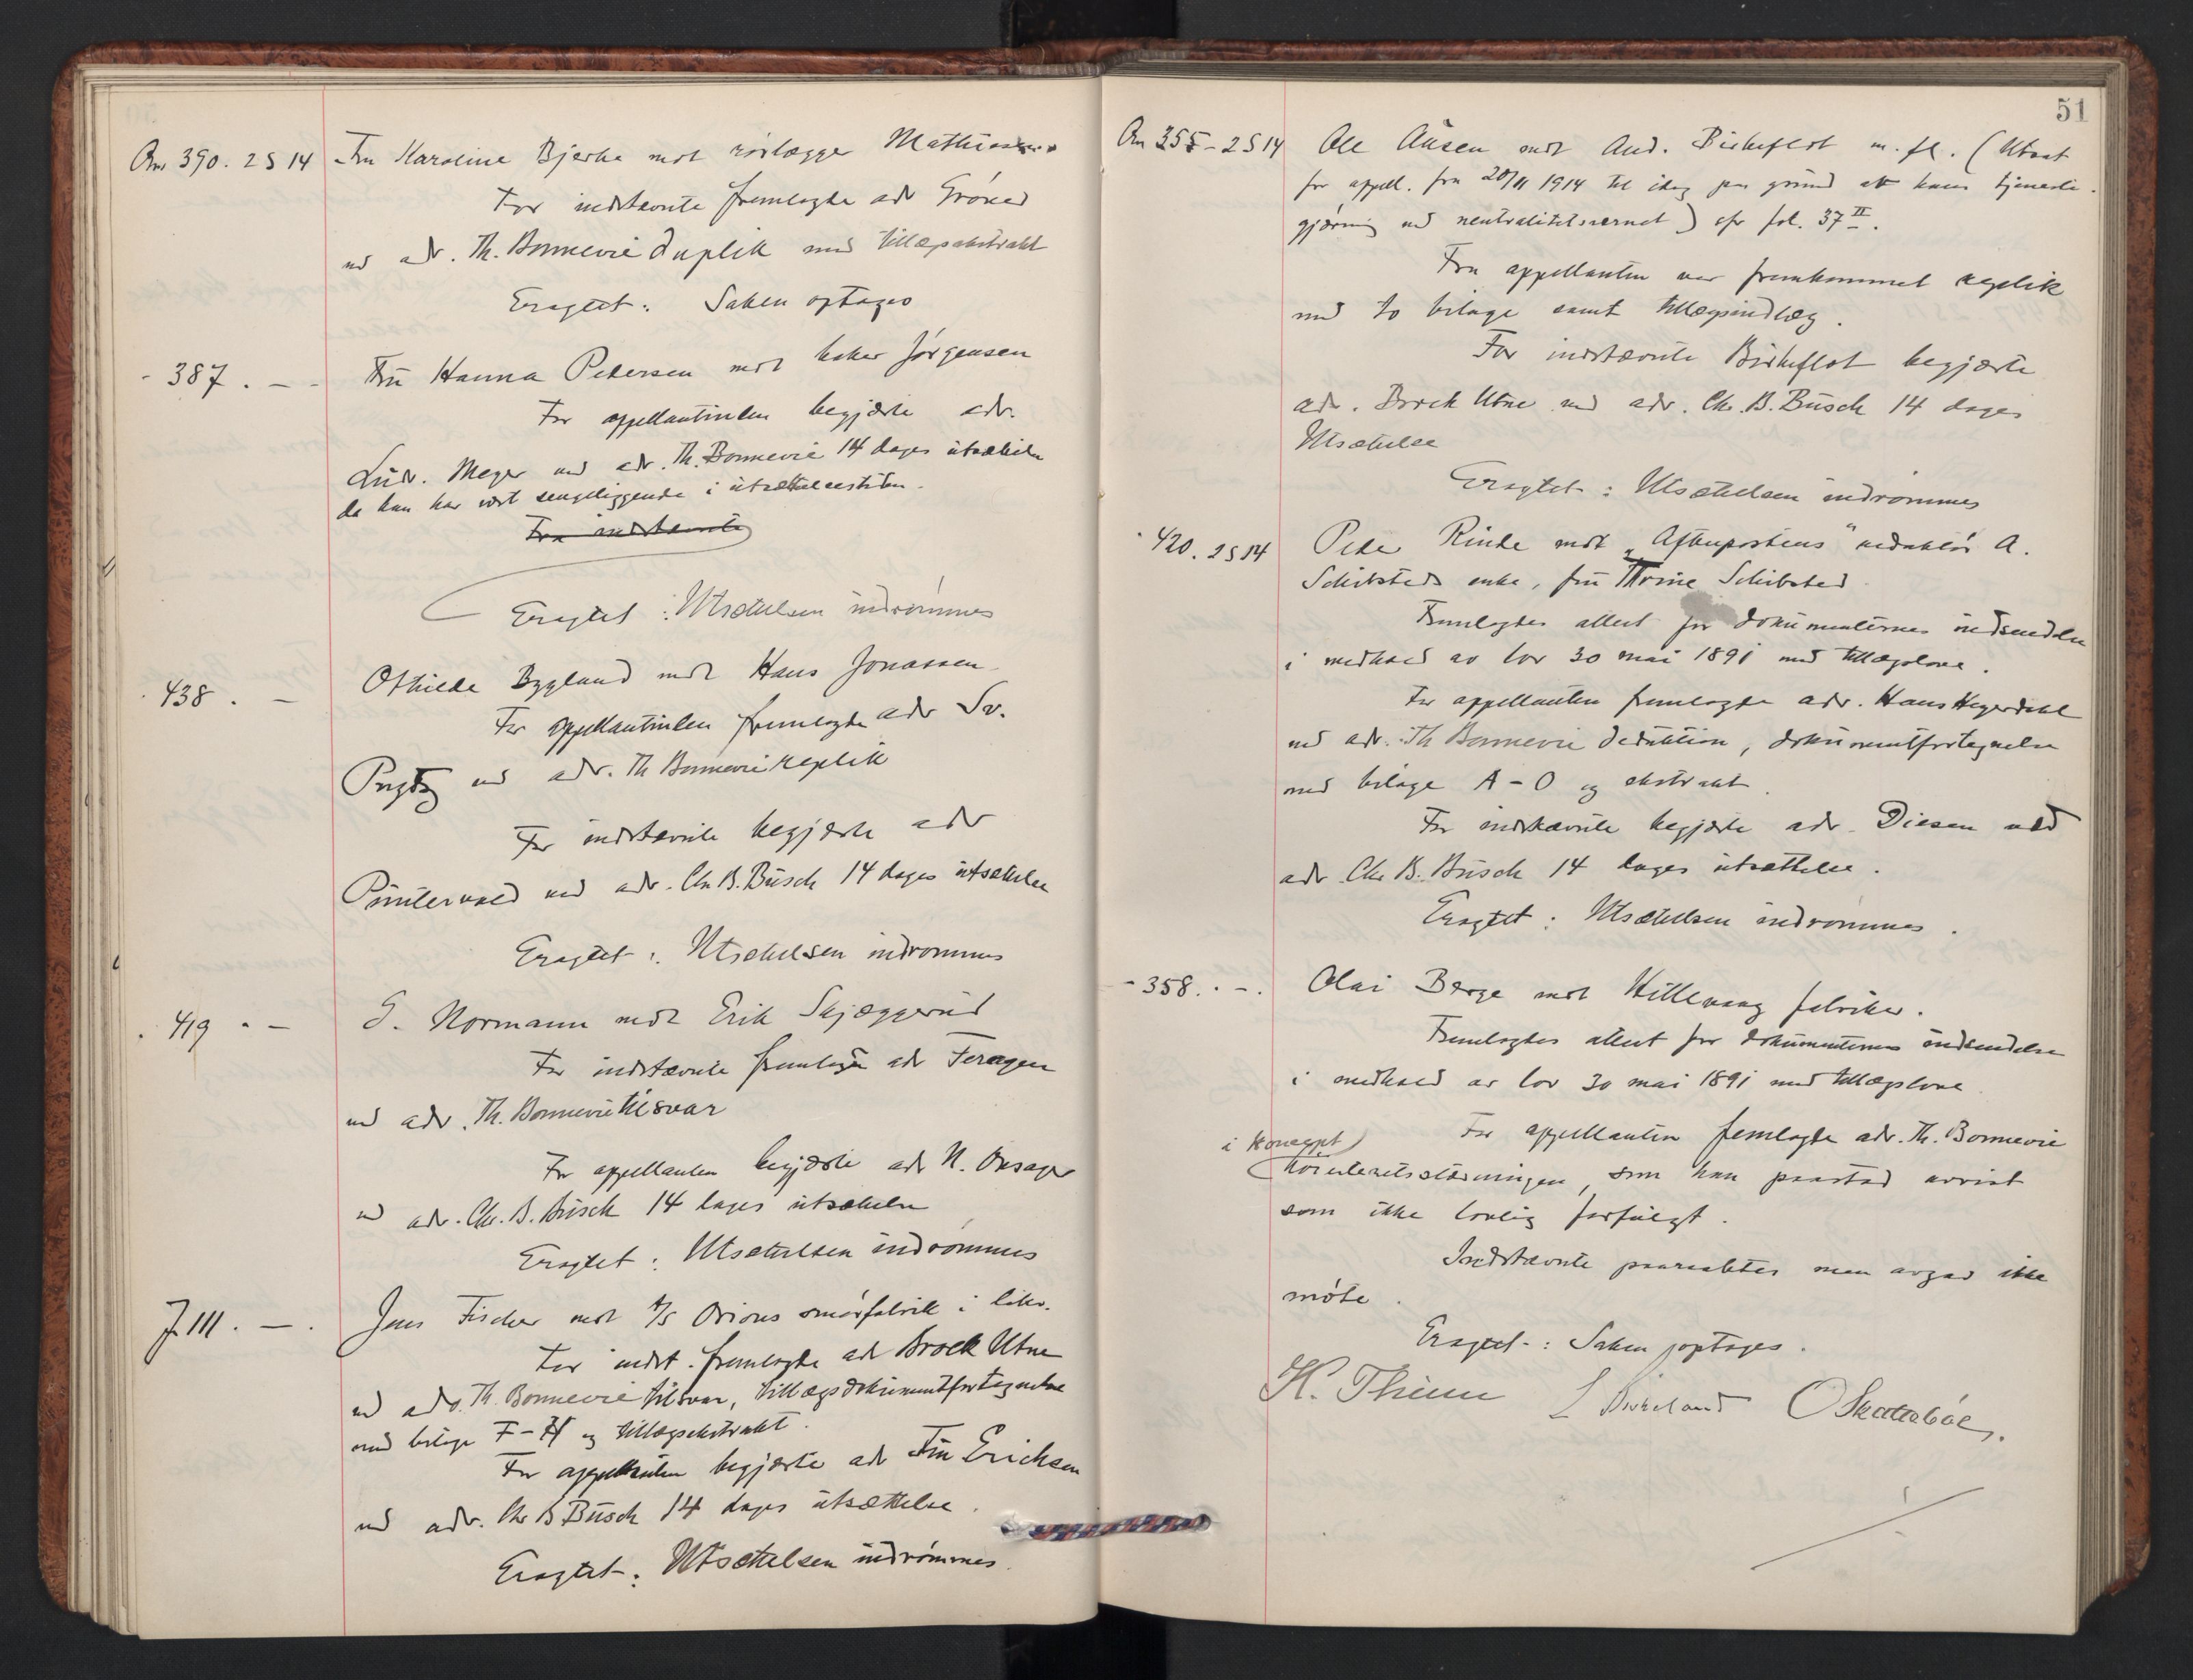 An 390. 2 S 14 Fru Karoline Bjerke mot rörlægger Mathiesen
For indstevnte fremlagde adv Gröner
ved adv. Th. Bonnevie duplik med tillægsekstrakt
Eragtet: Saken optages
- 387. — - Fru Hanna Petersen mot baker Jörgensen
For appellantinden begjærte adv.
Ludv. Meyer ved adv. Th. Bonnevie 14 dages utsættelse
da han har vært sengeliggende i utsættelsestiden.
For indstevnte
Eragtet: Utsættelsen indrömmes
438. — Othilde Bygland mot Hans Jonassen
For appellantinden fremlagde adv Sv.
ved adv. Th Bonnevie replik
For indstevnte begjærte adv
Püntervold ved adv. Chr B. Busch 14 dages utsættelse
Eragtet: Utsættelsen indrömmes
419 - — S. Normann mot Erik Skjæggerud
For indstævnte fremlagde adv Feragen
ved adv. Th. Bonnevie tilsvar
For appellanten begjærte adv N. Onsager
ved adv. Chr. B. Busch 14 dages utsættelse
Eragtet: Utsættelsen indrömmes
J. 111. —. Jens Fischer mot A/S Orions smörfabrik i likv.
For indst. fremlagde adv Brock Utne
ved adv. Th. Bonnevie tilsvar, tillægsdokumentfortegnelse
med bilage F-H og tillægsekstrakt.
For appellanten begjærte adv Finn Erichsen
ved adv. Chr B Busch 14 dages utsættelse.
Eragtet: Utsættelsen indrömmes.
51
An 355 - 2 S 14 Ole Aasen mot And. Birkeflot m. fl. (Utsat
for appell. fra 20/11 1914 til idag paa grund av hans tjeneste-
gjöring ved neutralitetsvernet) cfr fol. 37 II.
Fra appellanten var fremkommet replik
med to bilage samt tillægsindlæg.
For indstævnte Birkeflot begjærte
adv. Brock Utne ved adv. Chr. B. Busch 14 dages
Utsættelse
Eragtet: Utsættelsen indrömmes
420. 2 S 14 Peder Rinde mot "Aftenpostens" redaktör A.
Schibsteds enke, fru Thrine Schibsted
Fremlagdes attest for dokumenternes indsendelse
i medhold av lov 30 mai 1891 med tillægslove.
For appellanten fremlagde adv. Hans Heyerdahl
ved adv. Th Bonnevie deduktion, dokumentfortegnelse
med bilage A - O og ekstrakt.
For indstævnte begjærte adv. Diesen ved
adv Chr B. Busch 14 dages utsættelse.
Eragtet: Utsættelsen indrömmes.
- 358. . -. Olai Berge mot Hillevaag fabriker.
Fremlagdes attest for dokumenternes indsendelse
i medhold av lov 30 mai 1891 med tillægslove
For appellanten fremlagde adv. Th. Bonnevie
i koncept
som han paastod avvist
som ikke lovlig forfulgt.
Indstævnte paaraabtes men avgav ikke
möte.
Eragtet: Saken optages.
H. Thiim L Birkeland O Skattebøl.